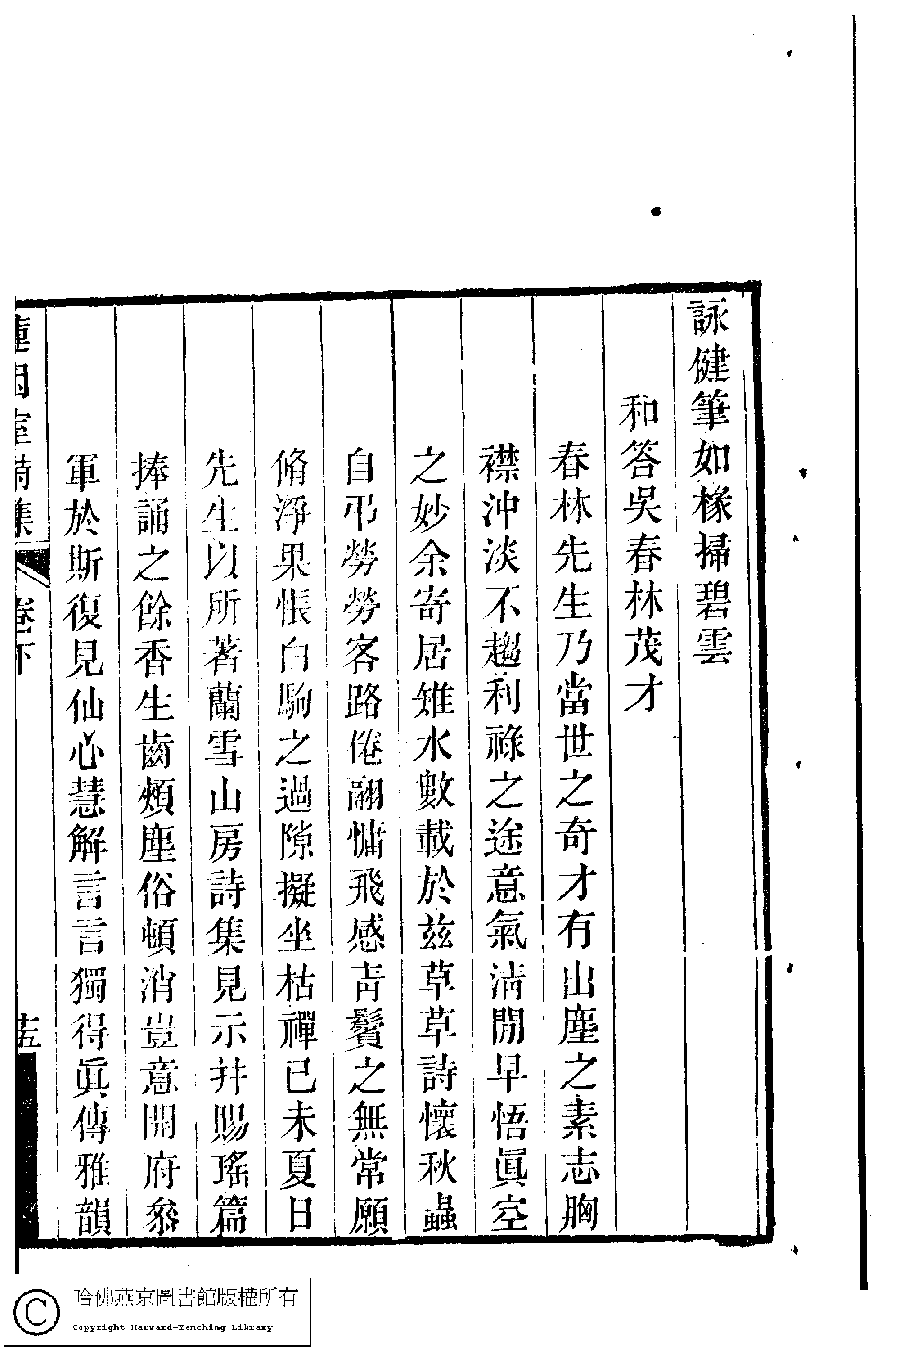 詠健筆如椽掃碧雲
和答吳春林茂才
春林先生乃當世之奇才有出塵之素志胸
襟沖淡不趨利祿之途意氣淸閒早悟眞空
之妙余寄居雉水數載於茲草草詩懷秋蟲
自弔勞勞客路倦翮慵飛感靑鬢之無常願
脩淨果悵白駒之過隙擬坐枯禪已未夏日
先生以所著蘭雪山房詩集見示幷賜瑤篇
捧誦之餘香生齒頰塵俗頓消豈意開府參
軍於斯復見仙心慧解言言獨得眞傳雅韻
集 卷下
十五
哈佛燕京圖書館版權所有
Copyright Harvard-Yenching Library